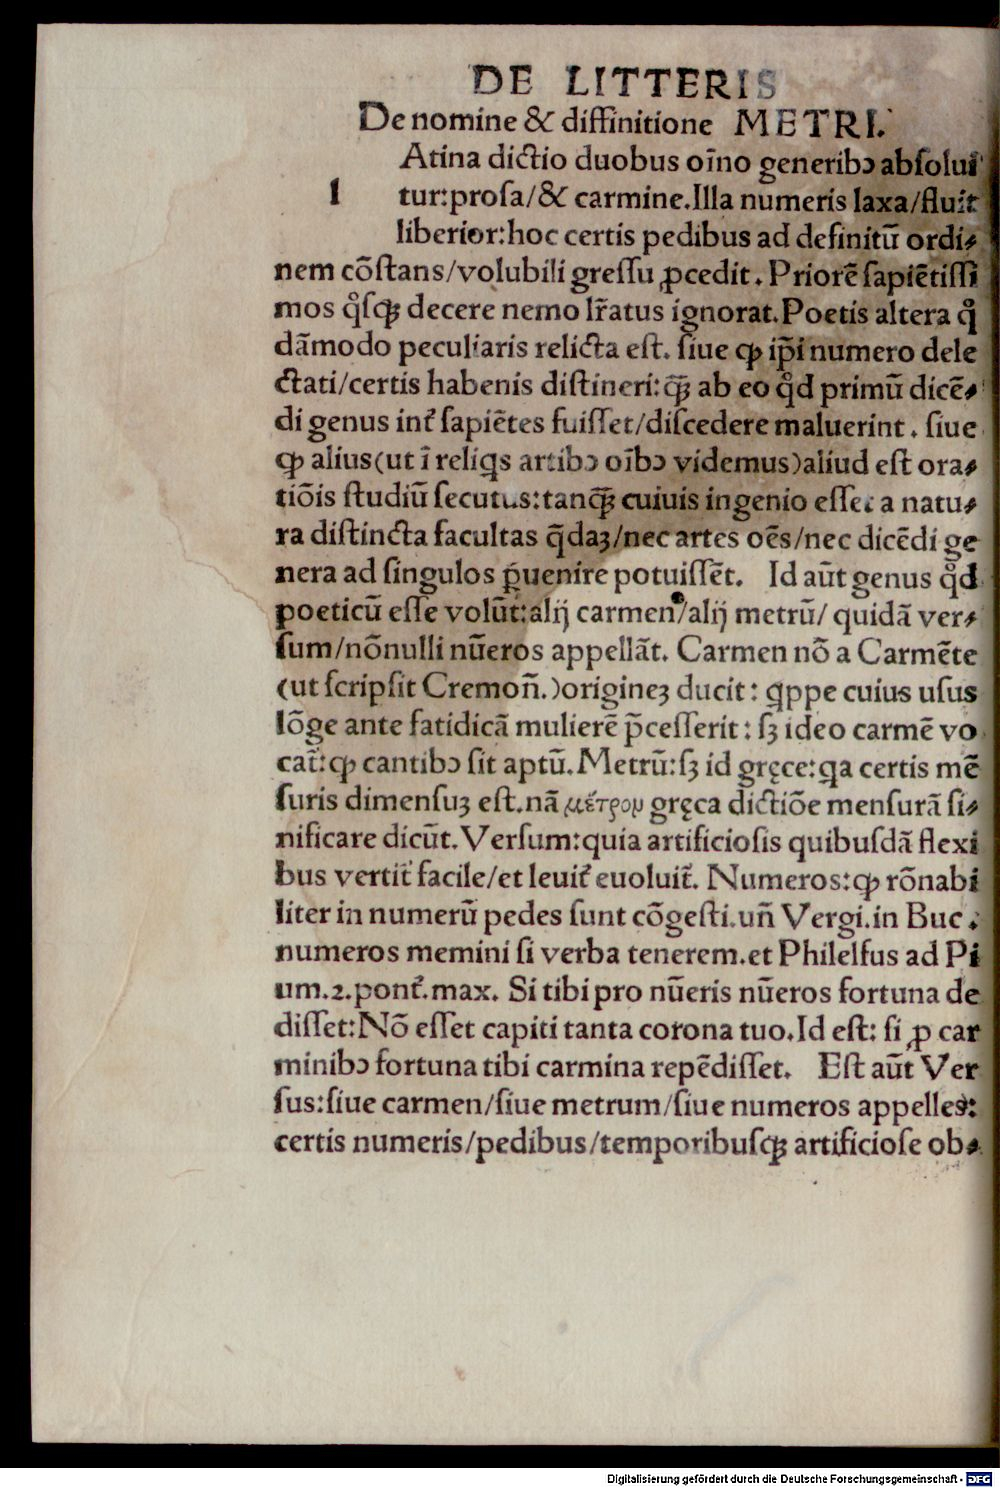 DE LITTERIS
De nomine & diffinitione METRI.
Atina dictio duobus oīno generibꝫ absolui
l tur:prosa/& carmine.Illa numeris laxa/fluit
liberior:hoc certis pedibus ad definitū ordi-
nem cōstans/volubili gressu ꝓcedit. Priorē sapiētissi
mos qͦsqꝫ decere nemo lr̄atus ignorat.Poetis altera qͦ
dāmodo peculiaris relicta est. siue ꝙ ip̄i numero dele
ctati/certis habenis distineri:qꝫ̄ ab eo qͦd primū dicē-
di genus int̉ sapiētes fuisset/discedere maluerint. siue
ꝙ alius(ut ī reliqs artibꝫ oībꝫ videmus)aliud est ora-
tiōis studiū secutus:tanqꝫ̄ cuiuis ingenio esset a natu-
ra distincta facultas q̄daꝫ/nec artes oēs/nec dicēdi ge
nera ad singulos ꝑuenire potuissēt. Id aūt genus qͦd
poeticū esse volūt:alij carmen/alij metrū/ quidā ver-
sum/nōnulli nūeros appellāt. Carmen nō a Carmēte
(ut scripsit Cremoñ.)origineꝫ ducit: qppe cuius usus
lōge ante fatidicā mulierē p̄cesserit: sꝫ ideo carmē vo
cat̉:ꝙ cantibꝫ sit aptū.Metrū:sꝫ id gręce:qa certis mē
suris dimensuꝫ est.nā μέτρον gręca dictiōe mensurā si-
nificare dicūt.Versum:quia artificiosis quibusdā flexi
bus vertit̉ facile/et leuit̉ euoluit̉. Numeros:ꝙ rōnabi
liter in numerū pedes sunt cōgesti.uñ Vergi.in Buc.
numeros memini si verba tenerem.et Philelfus ad Pi
um.2.pont̉.max. Si tibi pro nūeris nūeros fortuna de
disset:Nō esset capiti tanta corona tuo.Id est: si ꝓ car
minibꝫ fortuna tibi carmina repēdisset. Est aūt Ver
sus:siue carmen/siue metrum/siue numeros appelles:
certis numeris/pedibus/temporibusqꝫ artificiose ob-
Digitalisierung gefördert durch die Deutsche Forschungsgemeinschaft - DFG